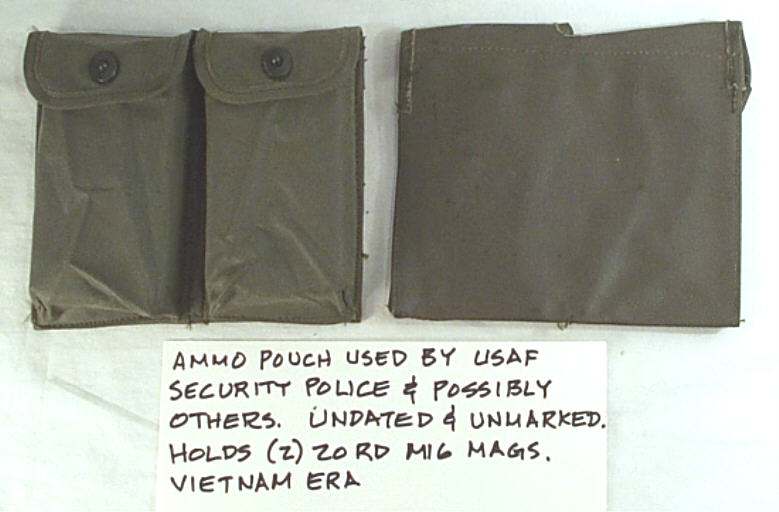 AMMO POUCH USED BY USAF
SECURITY POLICE & POSSIBLY
OTHERS. UNDATED & UNMARKED.
HOLDS (2) 20 RD M16 MAGS.
VIETNAM ERA